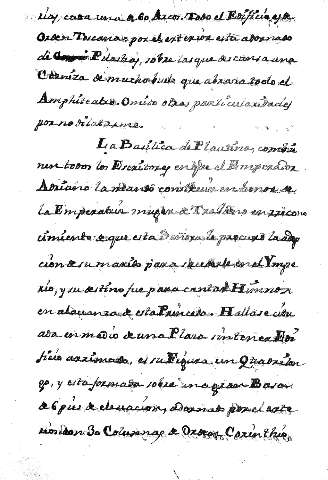 rias, cada una de 60 Arcos. Todo el Edificio es de
Orden Toscano: por el exterior está adornado
de Pilastras, sobre las que descansa una
Corniza de mucho bulto que abraza todo el
Amphiteatro. Omito otras particularidades
por no dilatarme.
La Basilica de Plautina, convie-
nen todos los Escritores en que el Emperador
Adriano la mandó construir en honor de
la Emperatriz muger de Trajano en recono-
cimiento de que esta Señora le procuró la adop-
cion de su marido para sucederle en el Ympe-
rio, y su destino fue para cantar Hymnos
en alavanza de esta Princesa. Hallase situ-
ada en medio de una Plaza sin tener Edi-
ficio arrimado, es su Figura un Quadrilon-
go, y está formada sobre una gran Basa
de 6 pies de elevacion, adornada por el exte-
rior con 30 Columnas de Orden Corinthio